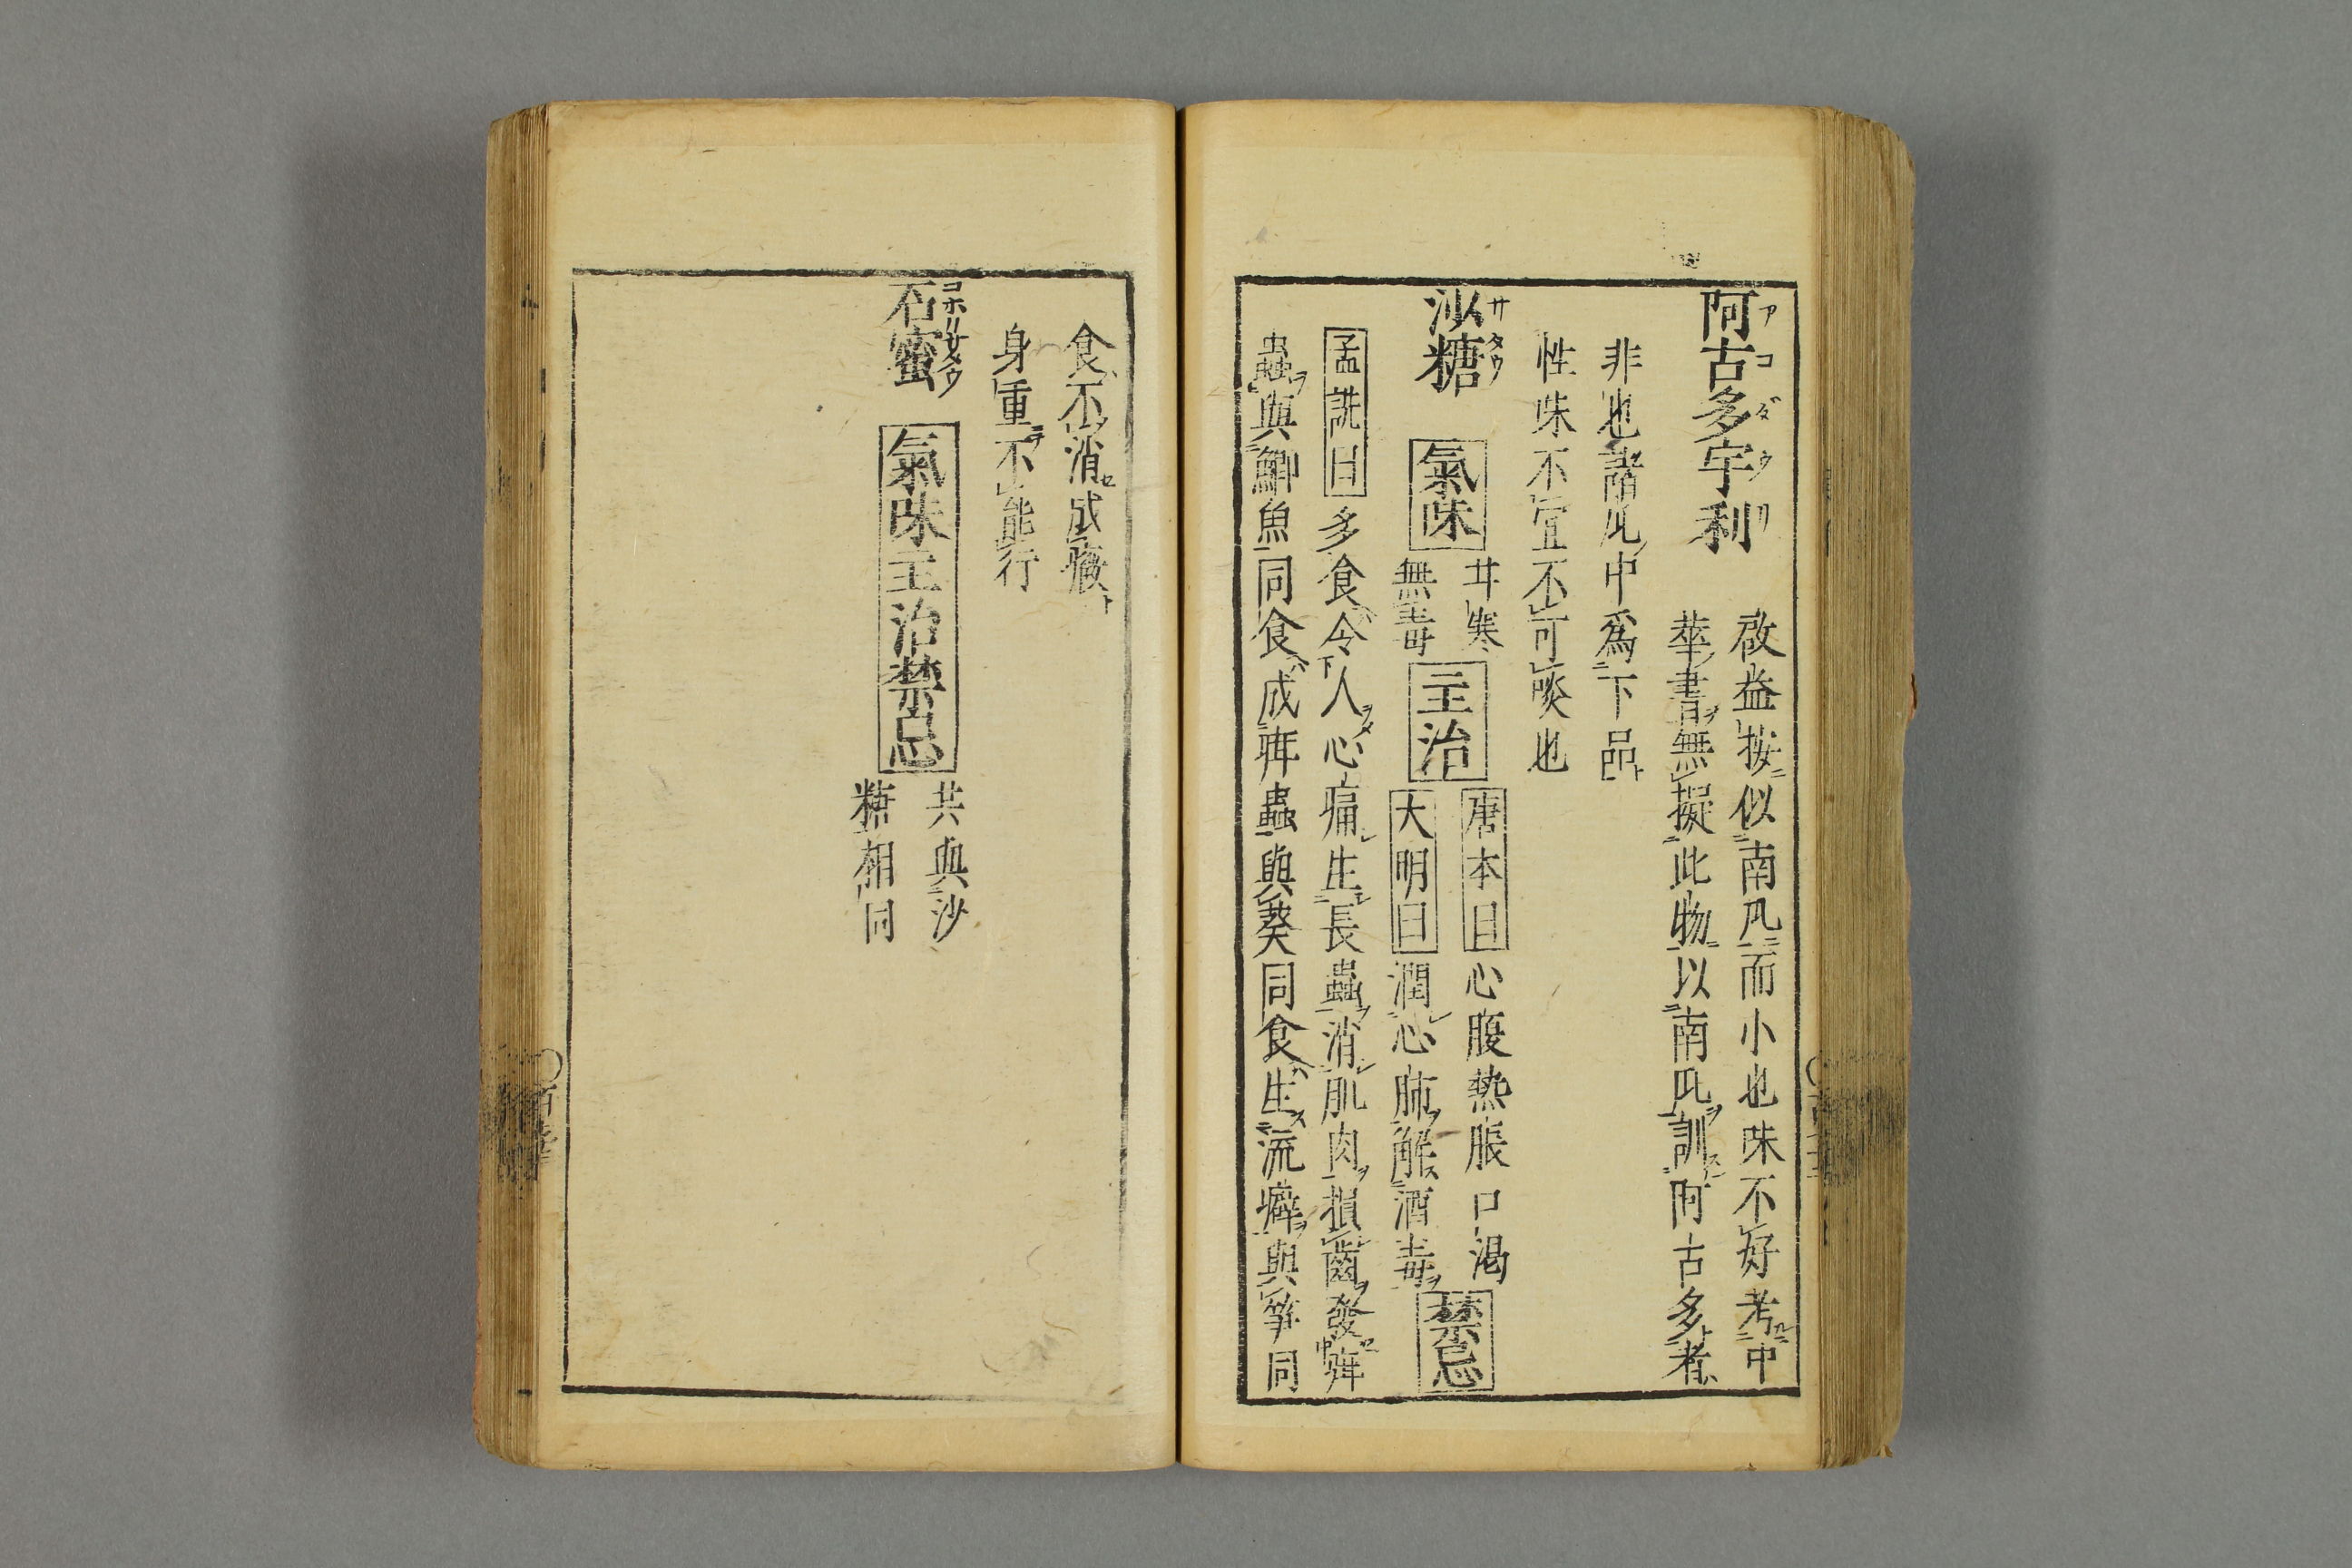 阿古多宇利
啟益按似南瓜而小也味不好考中
華書無擬此物以南瓜訓阿古多者
非也諸瓜中爲下品
性味不宜不可啖也
沙糖
氣味
甘寒
無毒
主治
唐本曰心腹熱脹口渴
大明曰潤心肺解酒毒
禁忌
孟詵曰多食令人心痛生長蟲消肌肉損齒發疳
蟲與鯽魚同食成疳蟲與葵同食生流癖與笋同
食不消成癥
身重不能行
石蜜
氣味主治禁忌
共與沙
糖相同